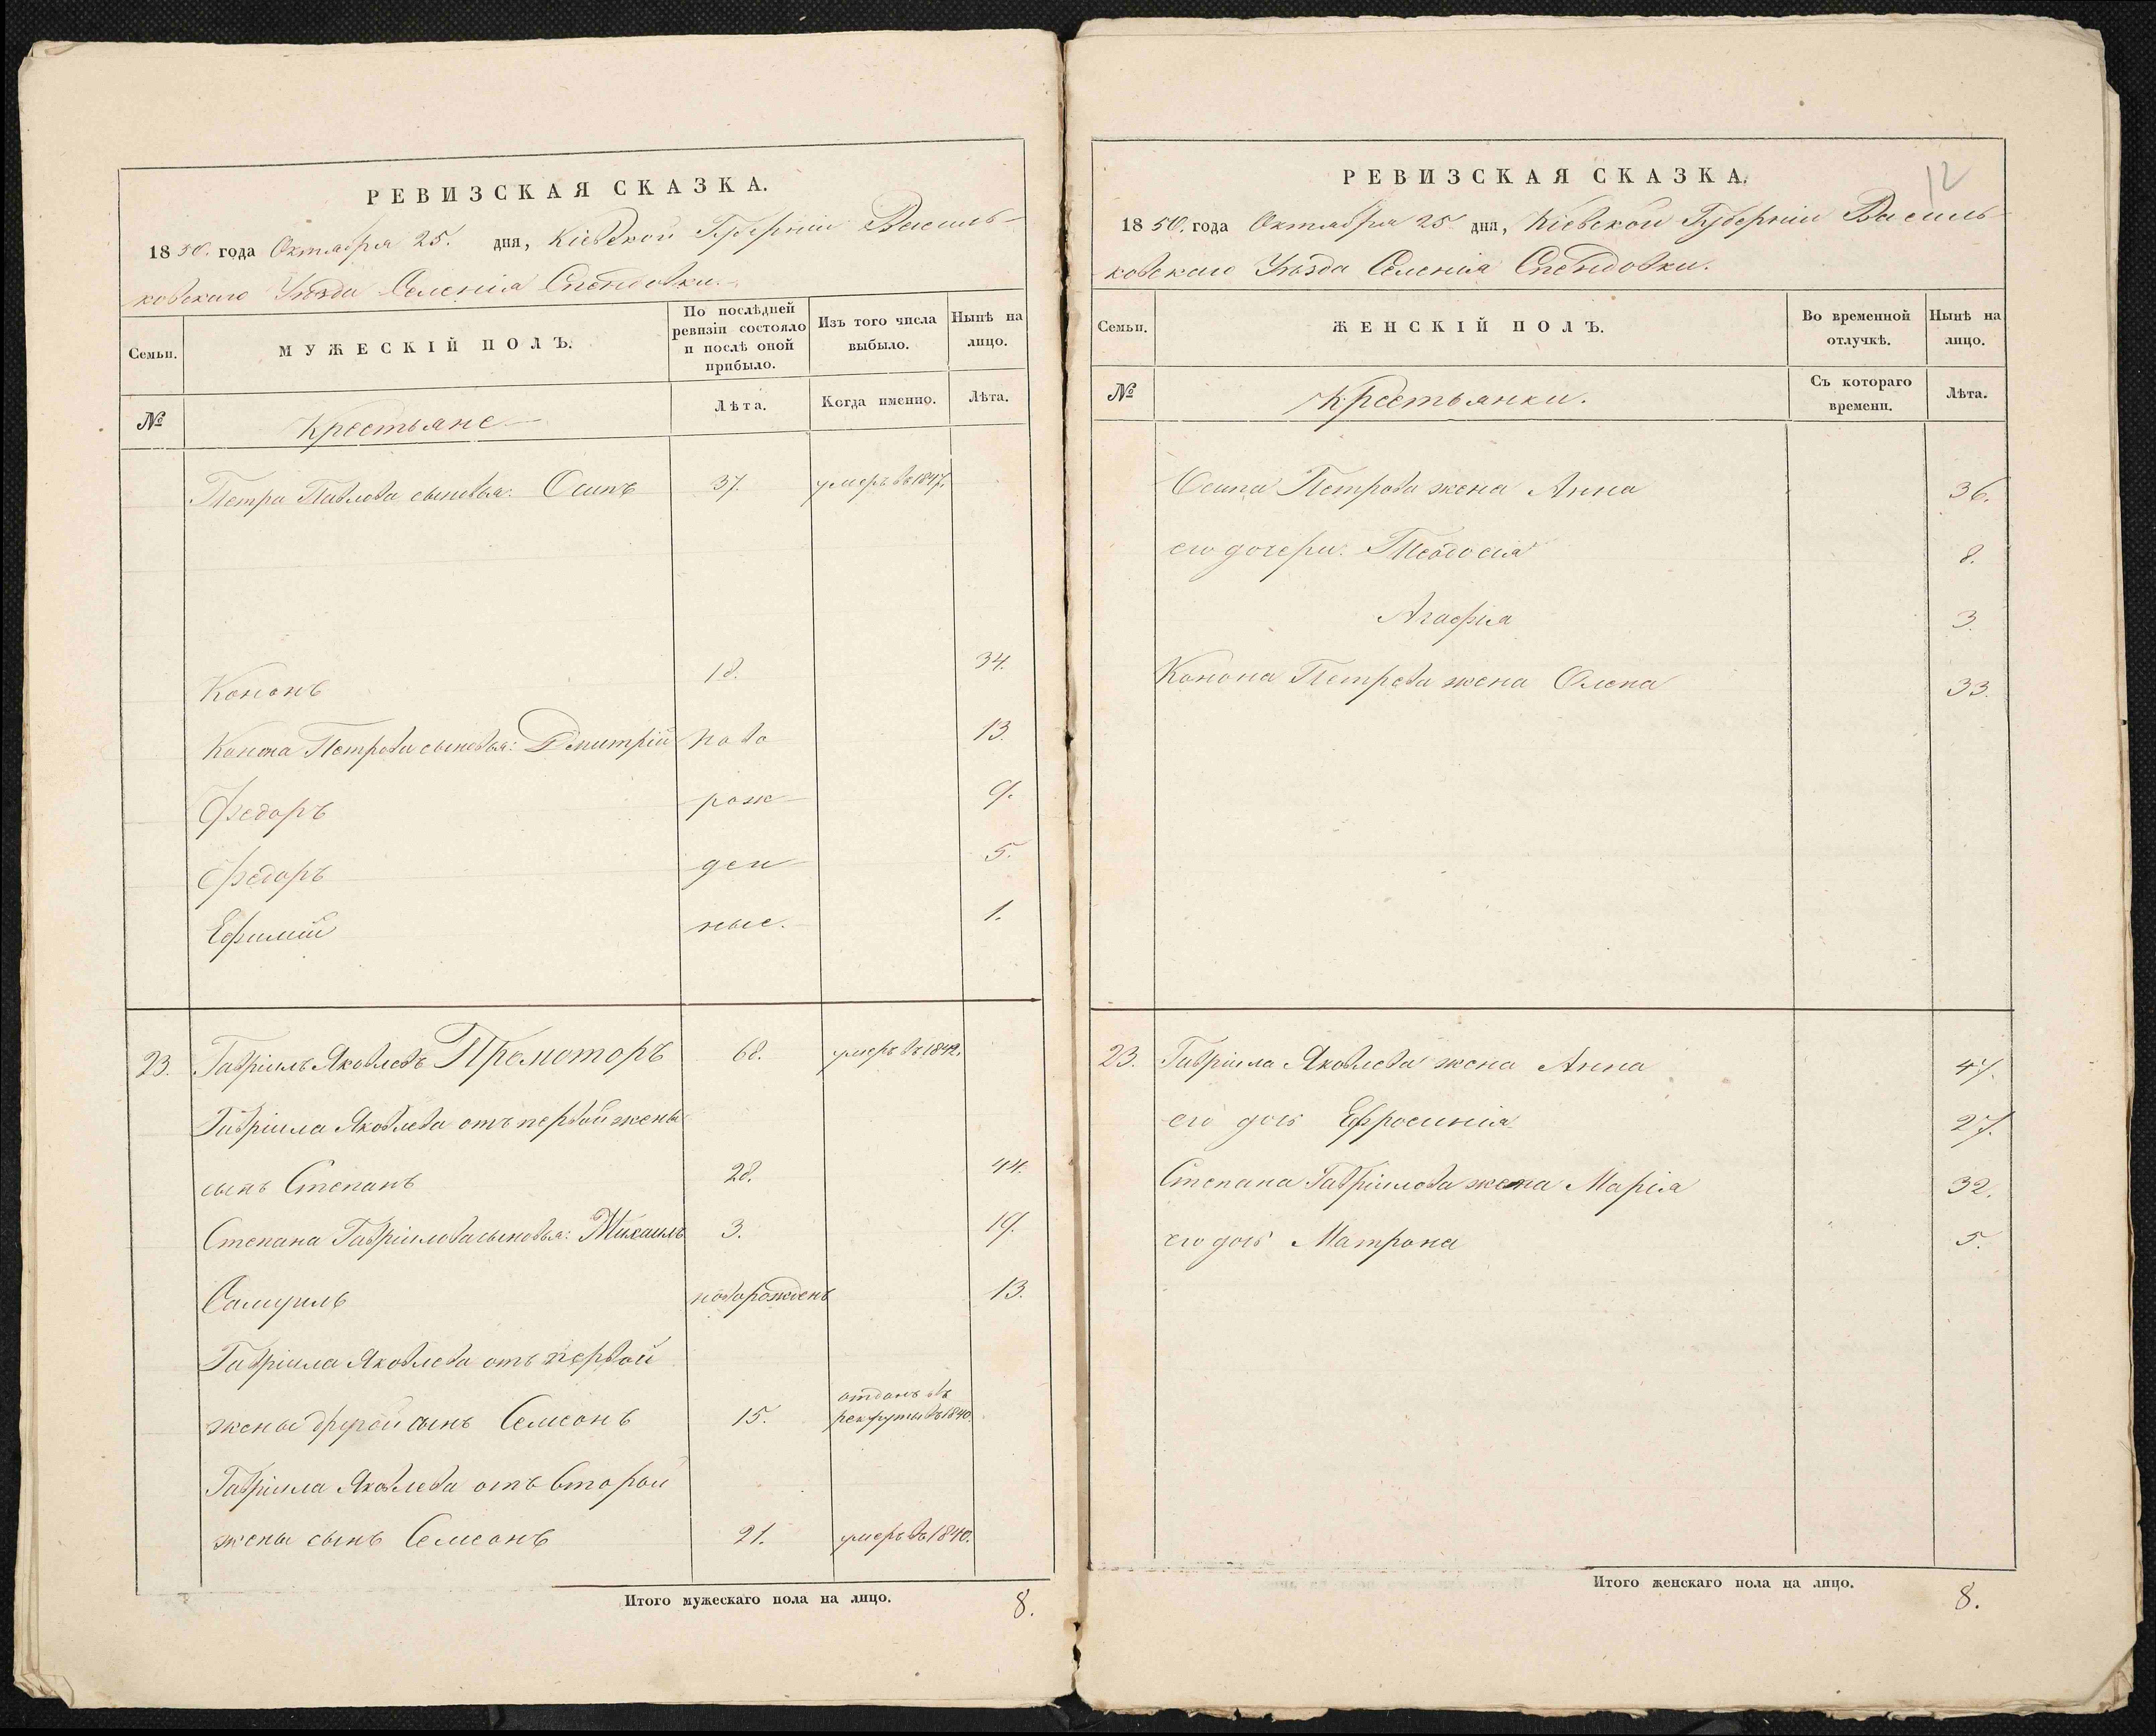 РЕВИЗСКАЯ СКАЗКА.
1850. года Октября 25. дня, Кіевской Губерніи Василь-
ковскаго Уѣзда Селенія Спендовки.
Семьи. МУЖЕСКІЙ ПОЛЪ. По послѣдней ревизіи состояло и послѣ оной прибыло. Изъ того числа выбыло. Нынѣ на лицо.
№ Крестьяне Лѣта. Когда именно. Лѣта.
Петра Павлова сыновья: Осипъ 37. умеръ въ 1847.
Кононъ 18. 34.
Конона Петрова сыновья: Дмитрій ново 13.
Федоръ рож 9.
Федоръ ден 5.
Ефимій ные. 1.
23. Гавріилъ Яковлевъ Премоторъ 68. умеръ въ 1842.
Гавріила Яковлева отъ первой жены
сынъ Степанъ 28. 44.
Степана Гавріилова сыновья: Михаилъ 3. 19.
Самуилъ новорожденъ 13.
Гавріила Яковлева отъ первой
жены другой сынъ Семеонъ 15. отданъ въ рекруты въ 1840.
Гавріила Яковлева отъ второй
жены сынъ Семеонъ 21. умеръ въ 1840.
Итого мужескаго пола на лицо. 8.
12
РЕВИЗСКАЯ СКАЗКА.
1850. года Октября 25 дня, Кіевской Губерніи Василь
ковскаго Уѣзда Селенія Спендовки.
Семьи. ЖЕНСКІЙ ПОЛЪ. Во временной отлучкѣ. Нынѣ на лицо.
№ Крестьянки. Съ котораго времени. Лѣта.
Осипа Петрова жена Анна 36.
его дочери: Феодосія 8.
Агафія 3.
Конона Петрова жена Олена 33.
23. Гавріила Яковлева жена Анна 47.
его дочь Ефросинія 27.
Степана Гавріилова жена Марія 32.
его дочь Матрона 5.
Итого женскаго пола на лицо. 8.